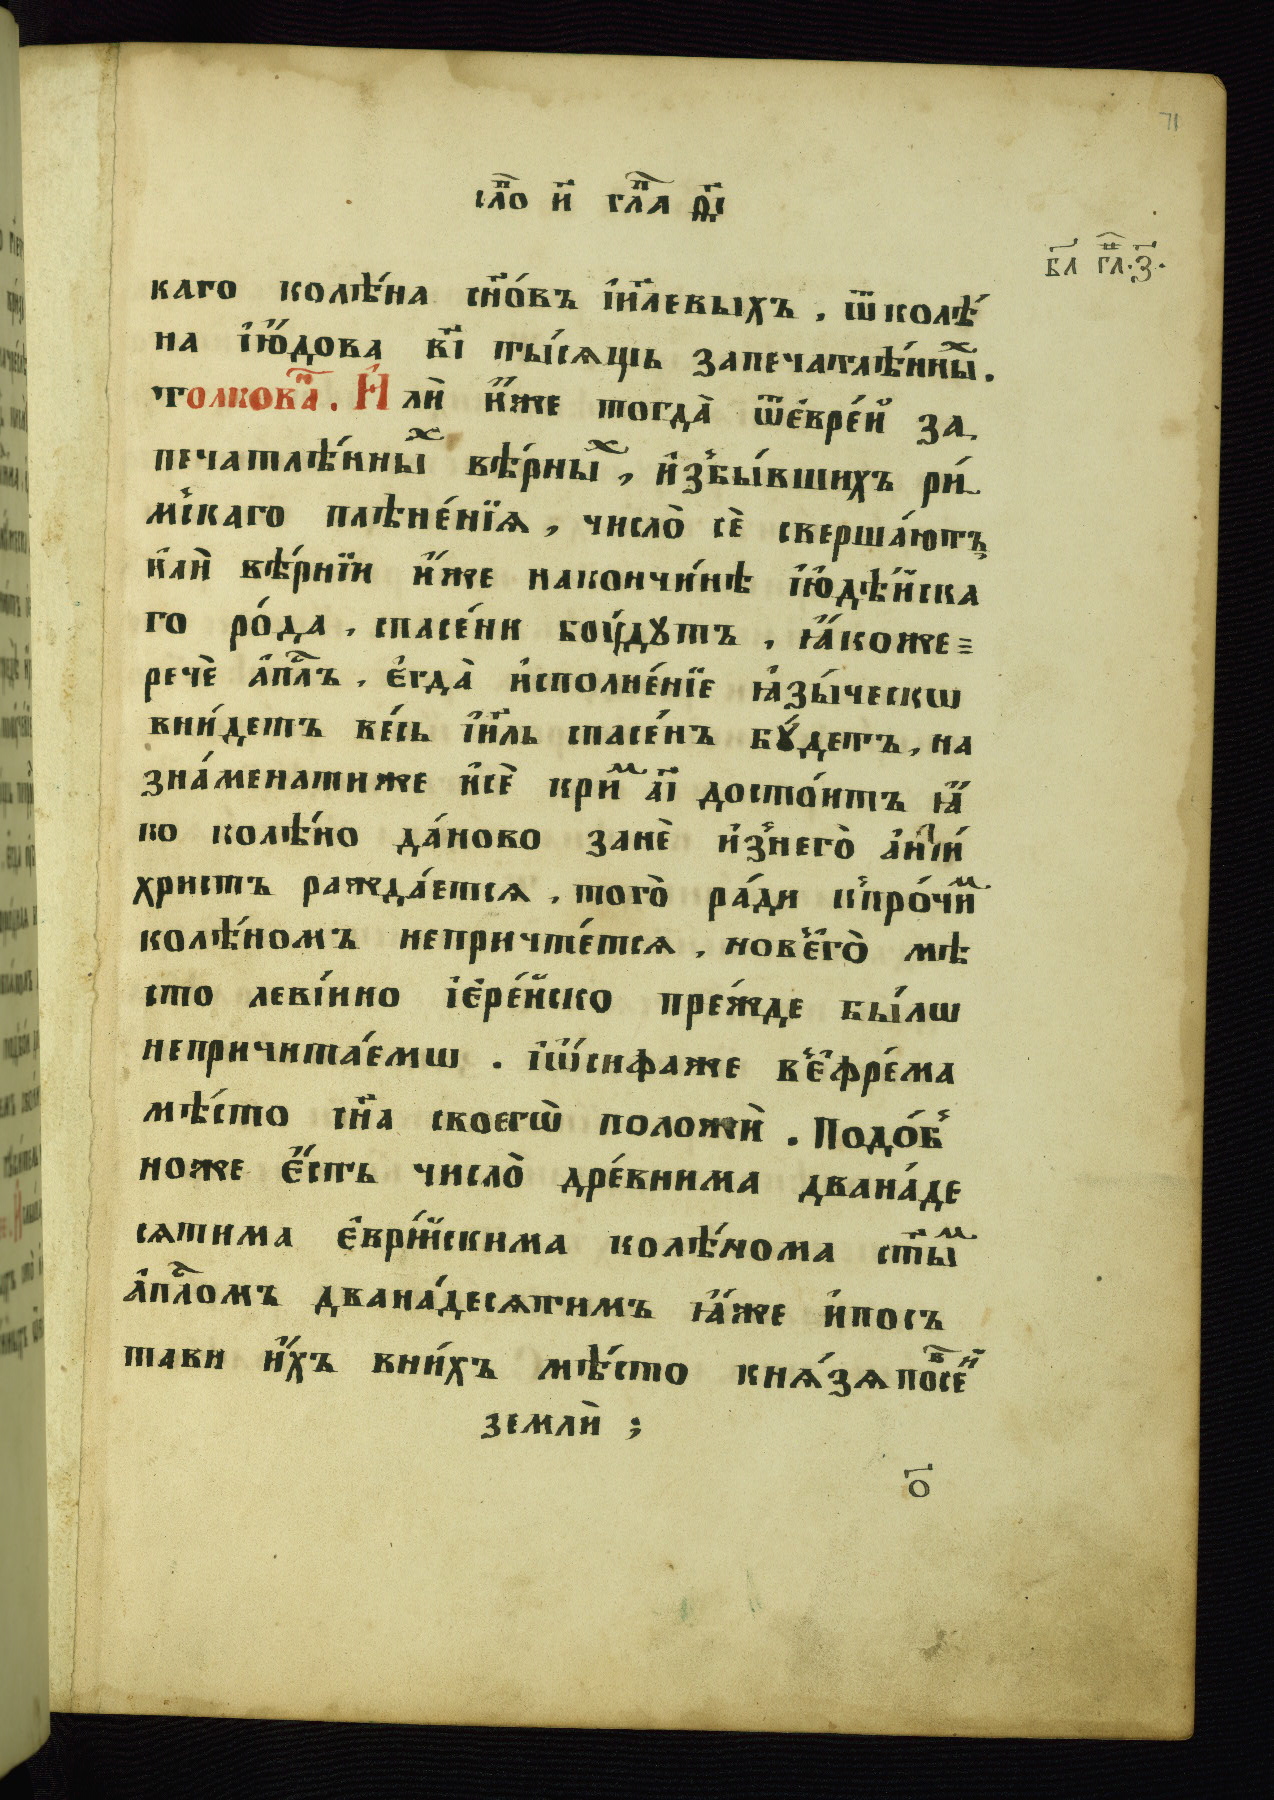 71
сло́ и҃ гла ѳ҃і
бл гл҃·з҃·
каго колѣ́на сн҃о́въ і҆и҃левыхъ , ѿколѣ́
на і҆ю҆́дова в҃і ты́сѧщь запечатлѣ́нны̆ⷯ .
толкова . И҆ лѝ и҆́же тогда̀ ѿе҆вре́й за
печатлѣ́нныⷯ вѣ́рныⷯ , и҆збы́вшихъ ри́
мскаго плѣне́нїѧ , число̀ сѐ сверша́ютъ
и҆лѝ вѣ́рнїи и҆́же накончи́нѣ і҆ю҆дѣ́йска
го ро́да . спасе́ни боꙋ́дꙋтъ . ꙗ҆́коже
речѐ а҆пⷭ҇лъ . є҆гда̀ и҆сполне́нїе ꙗ҆зы́ческѡ
вни́детъ ве́сь і҆и҃ль спасе́нъ бꙋ́детъ , на
зна́менатиже и҆сѐ криⷨ а҃і досто́итъ ꙗ҆́
ко колѣ́но да́ново занѐ и҆знего̀ а҆нти́
христъ ражда́етсѧ . того̀ ра́ди кпро́чиⷨ
колѣ́номъ непричте́тсѧ . новꙿє҆го̀ мѣ
сто леві́ино і҆є҆ре́йско пре́жде бы́лѡ
непричита́емѡ . і҆ѡ҆́сифаже вꙿє҆фре́ма
мѣ́сто сн҃а своегѡ̀ положѝ . Подо́бꙿ
ноже є҆́сть число̀ дре́внима двана́де
сѧтима є҆врі́йскима колѣ́нома ст҃ыⷨ
а҆пⷭ҇ломъ двана́десѧтимъ ꙗ҆́же и҆посъ
тави и҆́хъ вни́хъ мѣ́сто кнѧ́зѧ повсей
землѝ ;
о҃